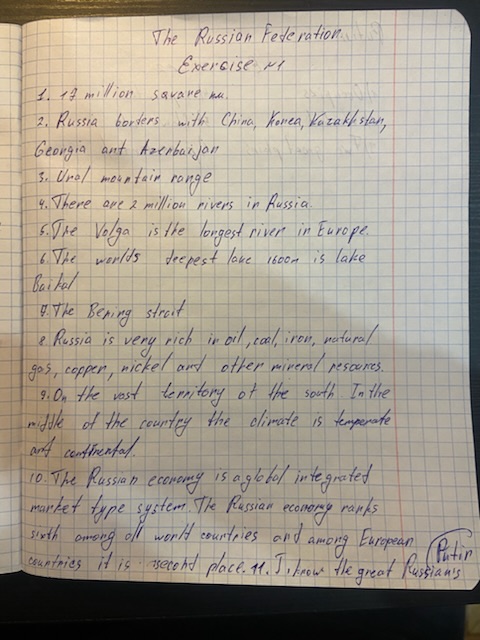 The Russian Federation
Exercise №1
1. 17 million square км.
2. Russia borders with China, Korea, Kazakhstan,
Georgia ant Azerbaijan
3. Ural mountain range
4. There are 2 million rivers in Russia.
5. The Volga is the longest river in Europe.
6. The worlds deepest lake 1600m is lake
Baikal
7. The Bering strait
8. Russia is very rich in oil, coal, iron, natural
gas, copper, nickel and other mineral resources.
9. On the vast territory of the south. In the
middle of the country the climate is temperate
ant continental.
10. The Russian economy is a global integrated
market type system. The Russian economy ranks
sixth among all world countries and among European
countries it is second place. 11. I know the great Russian's
Putin